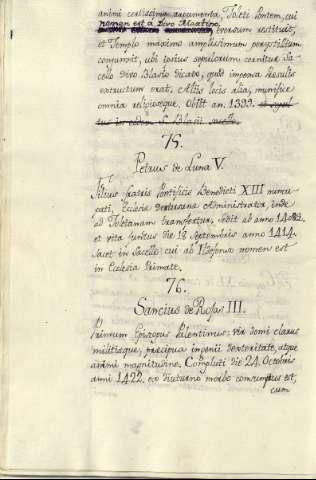 animi certissima argumenta. Toleti Pontem, cui
nomen est a Divo Martino, eversum restituit,
et Templo maximo amplissimum peristilium
conjunxit, ubi ipsius sepulcrum cernitur Sa-
cello Divo Blasio dicato, quod impensa Præsulis
extructum erat. Aliis locis alia, munifice
omnia religioseque. Obiit an. 1399.
75.
Petrus de Luna V.
Filius fratris Pontificis Benedicti XIII nuncu-
pati, Ecclesiæ Dertusanæ Administrator, inde
ad Toletanam transfertur, sedit ab anno
et vita functus die 18 Septembris anno 1414.
Jacet in Sacello cui ab Ildefonso nomen est
in Ecclesia Primate.
76.
Sancius de Rojas III.
Primum Episcopus Palentinus: vir domi clarus
militiæque, præcipua ingenii dexteritate, atque
animi magnitudine. Compluti die 24 Octobris
anni 1422. ex diuturno morbo consumptus est,
cum